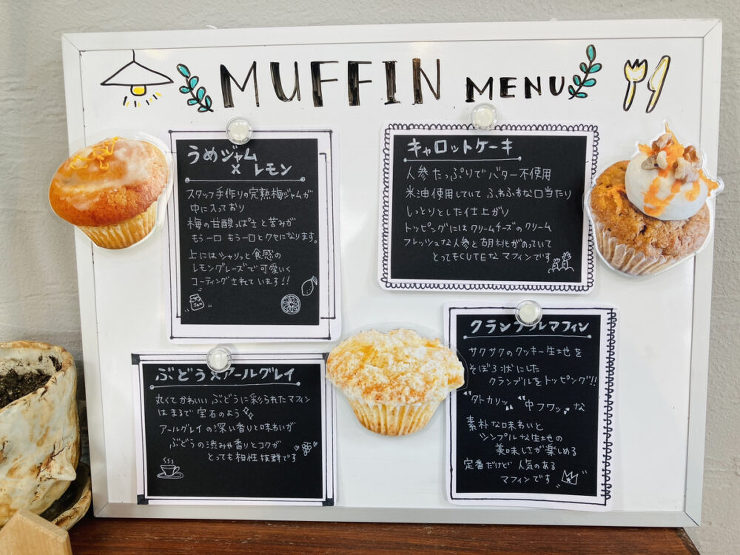 MUFFIN MENU
うめジャム
× レモン
スタッフ手作りの完熟梅ジャムが
中に入っており
梅の甘酸っぱさと苦みが
もう一口 もう一口とクセになります。
上にはシャリッと食感の
レモングレーズで可愛いく
コーティングされています!!
キャロットケーキ
人参たっぷりでバター不使用
米油使用していて ふわふわな口当たり
しっとりとした仕上がり
トッピングにはクリームチーズのクリーム
フレッシュな人参と胡桃がのっていて
とってもCUTEなマフィンです
ぶどう×アールグレイ
丸くてかわいい ぶどうに彩られたマフィン
はまるで宝石のよう
アールグレイの深い香りと味わいが
ぶどうの渋みや香りとコクが
とっても相性抜群です
クランブルマフィン
サクサクのクッキー生地を
そぼろ状にした
クランブルをトッピング!!
"外カリッ" "中フワッ"な
素朴な味わいと
シンプルな生地の
美味しさが楽しめる
定番だけど人気のある
マフィンです